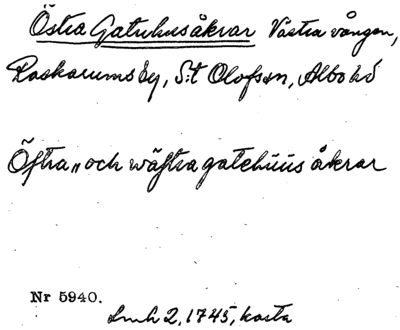 Östra Gatuhusåkrar Västra vången,
Raskarums by, S:t Olofs sn, Albo hd
Östra„ och wästra gatehuus åkrar
Nr 5940.
Lmh 2, 1745, karta